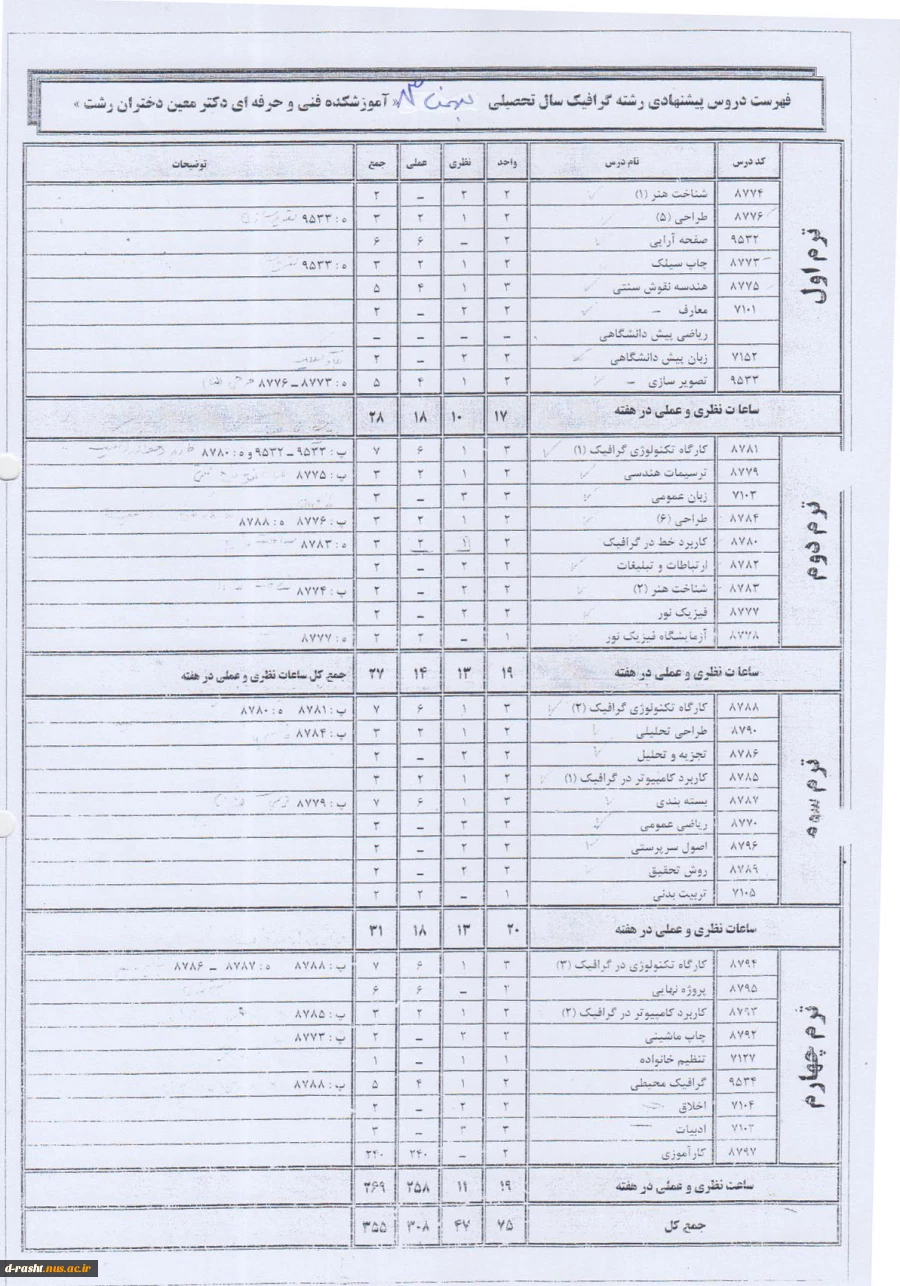 فهرست دروس پیشنهادی رشته گرافیک سال تحصیلی «آموزشکده فنی و حرفه ای دکتر معین دختران رشت»
کد درس نام درس واحد نظری عملی جمع توضیحات
ترم اول
۸۷۷۴ شناخت هنر (۱) ۲ ۲ – ۲
۸۷۷۶ طراحی (۵) ۲ ۱ ۲ ۳ ه: ۹۵۳۳
۹۵۳۲ صفحه آرایی ۲ – ۶ ۶
۸۷۷۳ چاپ سیلک ۲ ۱ ۲ ۳ ه: ۹۵۳۳
۸۷۷۵ هندسه نقوش سنتی ۳ ۱ ۴ ۵
۷۱۰۱ معارف – ۲ ۲ – ۲
ریاضی پیش دانشگاهی – – – –
۷۱۵۲ زبان پیش دانشگاهی ۲ ۲ – ۲
۹۵۳۳ تصویر سازی – ۲ ۱ ۴ ۵ ه: ۸۷۷۳ – ۸۷۷۶
ساعات نظری و عملی در هفته ۱۷ ۱۰ ۱۸ ۲۸
ترم دوم
۸۷۸۱ کارگاه تکنولوژی گرافیک (۱) ۳ ۱ ۶ ۷ پ: ۹۵۳۳ – ۹۵۳۲ و ه: ۸۷۸۰
۸۷۷۹ ترسیمات هندسی ۲ ۱ ۲ ۳ پ: ۸۷۷۵
۷۱۰۳ زبان عمومی ۳ ۳ – ۳
۸۷۸۴ طراحی (۶) ۲ ۱ ۲ ۳ پ: ۸۷۷۶ ه: ۸۷۸۸
۸۷۸۰ کاربرد خط در گرافیک ۲ ۱ ۲ ۳ ه: ۸۷۸۳
۸۷۸۲ ارتباطات و تبلیغات ۲ ۲ – ۲
۸۷۸۳ شناخت هنر (۲) ۲ ۲ – ۲ پ: ۸۷۷۴
۸۷۷۷ فیزیک نور ۲ ۲ – ۲
۸۷۷۸ آزمایشگاه فیزیک نور ۱ – ۲ ۲ ه: ۸۷۷۷
ساعات نظری و عملی در هفته ۱۹ ۱۳ ۱۴ ۲۷ جمع کل ساعات نظری و عملی در هفته
ترم سوم
۸۷۸۸ کارگاه تکنولوژی گرافیک (۲) ۳ ۱ ۶ ۷ پ: ۸۷۸۱ ه: ۸۷۸۰
۸۷۹۰ طراحی تحلیلی ۲ ۱ ۲ ۳ پ: ۸۷۸۴
۸۷۸۶ تجزیه و تحلیل ۲ ۲ – ۲
۸۷۸۵ کاربرد کامپیوتر در گرافیک (۱) ۲ ۱ ۲ ۳
۸۷۸۷ بسته بندی ۳ ۱ ۶ ۷ پ: ۸۷۷۹
۸۷۷۰ ریاضی عمومی ۳ ۳ – ۳
۸۷۹۶ اصول سرپرستی ۲ ۲ – ۲
۸۷۸۹ روش تحقیق ۲ ۲ – ۲
۷۱۰۵ تربیت بدنی ۱ – ۲ ۲
ساعات نظری و عملی در هفته ۲۰ ۱۳ ۱۸ ۳۱
ترم چهارم
۸۷۹۴ کارگاه تکنولوژی در گرافیک (۳) ۳ ۱ ۶ ۷ پ: ۸۷۸۸ ه: ۸۷۸۷ – ۸۷۸۶
۸۷۹۵ پروژه نهایی ۲ – ۶ ۶
۸۷۹۳ کاربرد کامپیوتر در گرافیک (۲) ۲ ۱ ۲ ۳ پ: ۸۷۸۵
۸۷۹۲ چاپ ماشینی ۲ ۲ – ۲ پ: ۸۷۷۳
۷۱۲۷ تنظیم خانواده ۱ ۱ – ۱
۹۵۳۴ گرافیک محیطی ۲ ۱ ۴ ۵ پ: ۸۷۸۸
۷۱۰۴ اخلاق ۲ ۲ – ۲
۷۱۰۲ ادبیات ۳ ۳ – ۳
۸۷۹۷ کارآموزی ۲ – ۲۴۰ ۲۴۰
ساعت نظری و عملی در هفته ۱۹ ۱۱ ۲۵۸ ۲۶۹
جمع کل ۷۵ ۴۷ ۳۰۸ ۳۵۵
d-rasht.nus.ac.ir